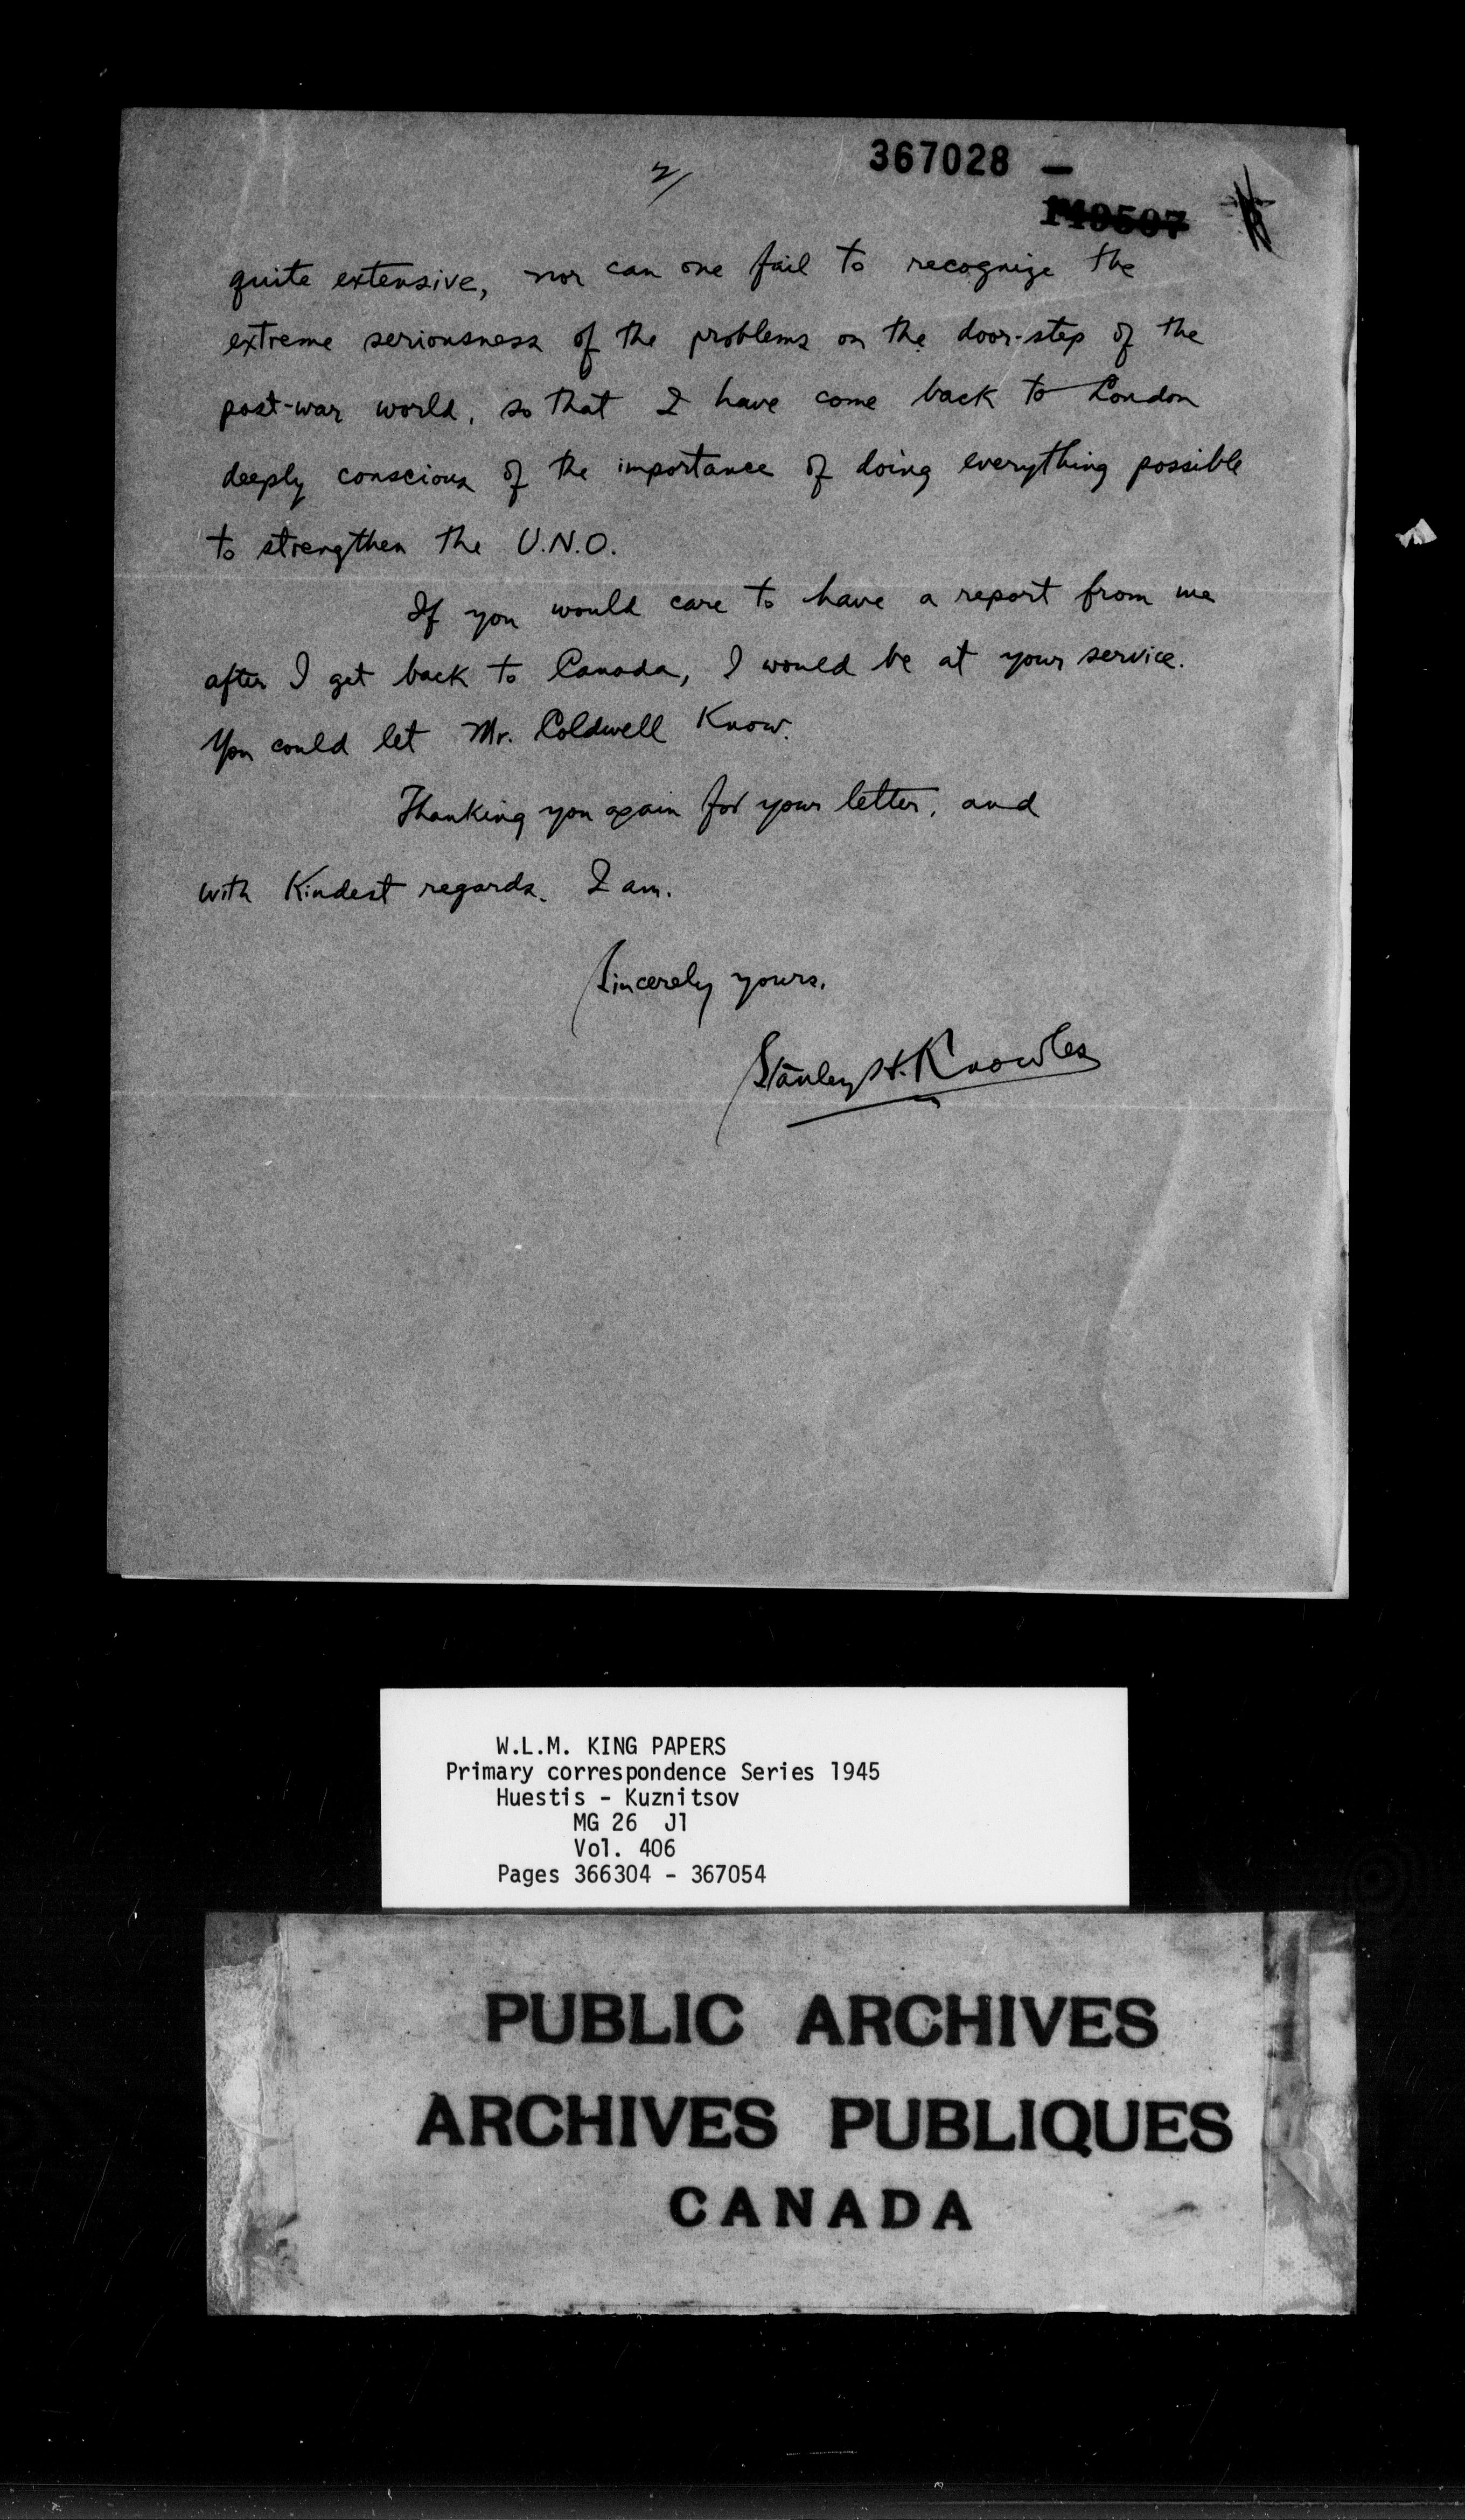 2/
367028 -
quite extensive, nor can one fail to recognize the
extreme seriousness of the problems on the door-step of the
post-war world, so that I have come back to London
deeply conscious of the importance of doing everything possible
to strengthen the U.N.O.
If you would care to have a report from me
after I get back to Canada, I would be at your service.
You could let Mr. Coldwell Know.
Thanking you again for your letter, and
with Kindest regards, I am,
Sincerely yours,
Stanley H. Knowles
W.L.M. KING PAPERS
Primary correspondence Series 1945
Huestis - Kuznitsov
MG 26 J1
Vol. 406
Pages 366304 - 367054
PUBLIC ARCHIVES
ARCHIVES PUBLIQUES
CANADA